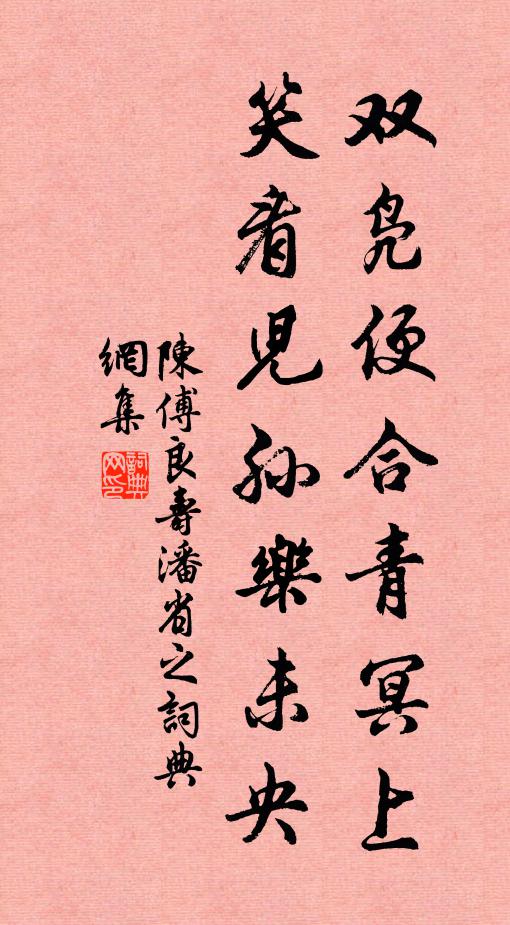 双凫便合青冥上
笑看児孙樂未央
陳傅良壽潘省之詞典
網集
詞典網印